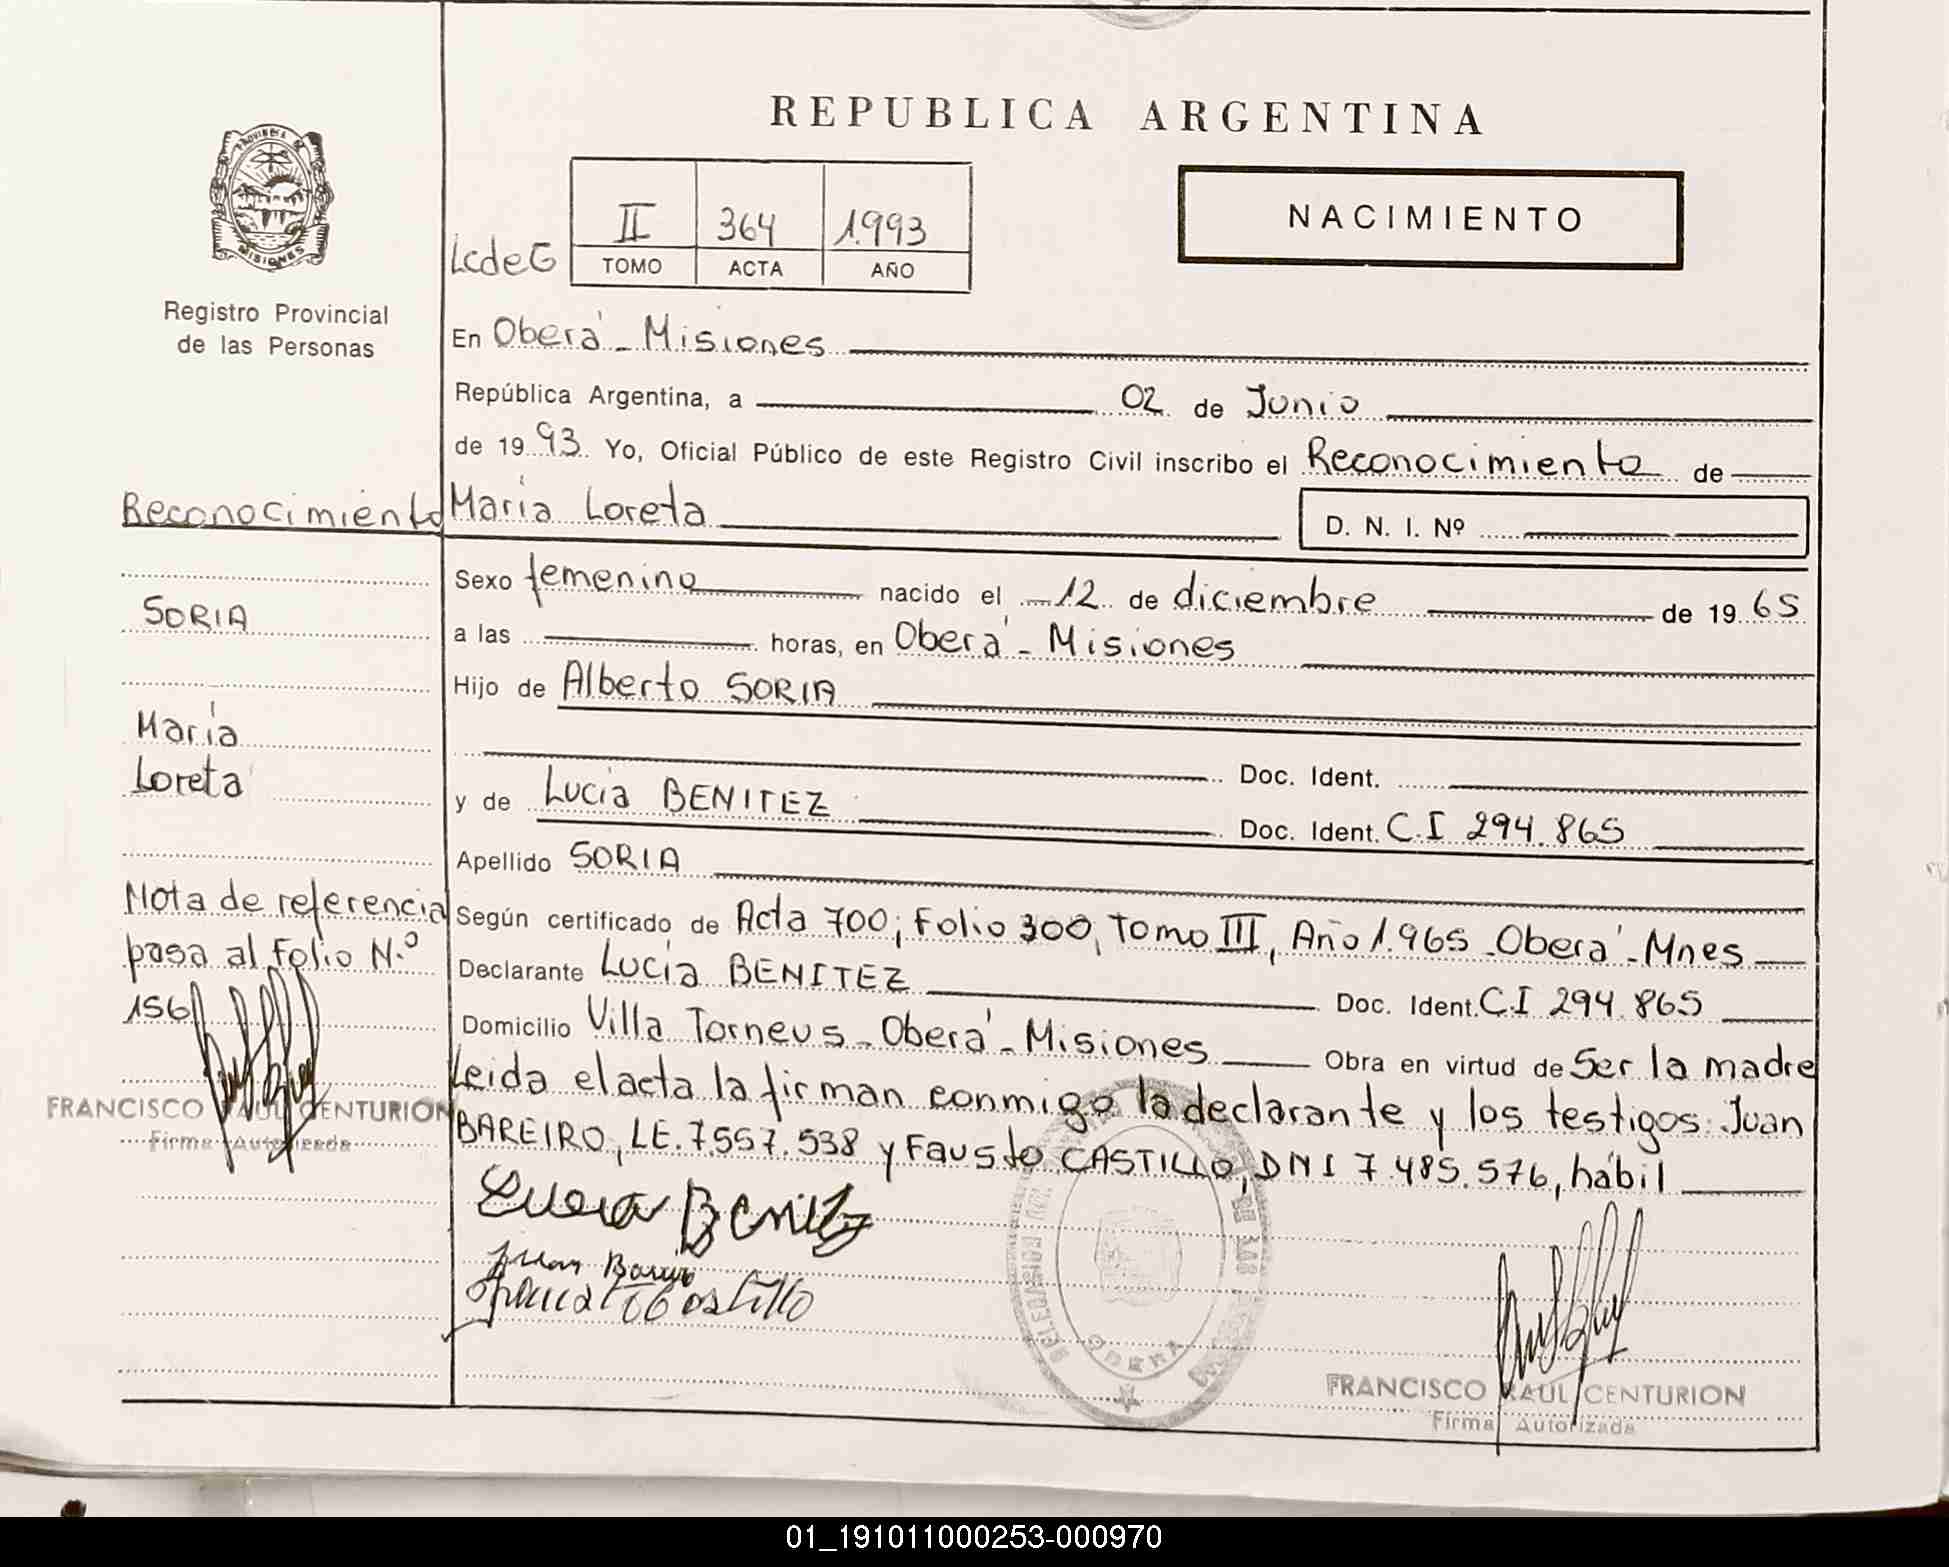 REPUBLICA ARGENTINA
PROVINCIA DE
MISIONES
Registro Provincial
de las Personas
LcdeG
II 364 1.993
TOMO ACTA AÑO
NACIMIENTO
En Oberá - Misiones
República Argentina, a 02 de Junio
de 1993. Yo, Oficial Público de este Registro Civil inscribo el Reconocimiento de
María Loreta D. N. I. Nº
Sexo femenino nacido el 12 de diciembre de 1965
a las horas, en Oberá - Misiones
Hijo de Alberto SORIA
Doc. Ident.
y de Lucía BENITEZ Doc. Ident. C.I 294.865
Apellido SORIA
Según certificado de Acta 700, Folio 300, Tomo III, Año 1.965 - Oberá - Mnes
Declarante Lucía BENITEZ Doc. Ident. C.I 294.865
Domicilio Villa Torneus - Oberá - Misiones Obra en virtud de Ser la madre
Leida el acta la firman conmigo la declarante y los testigos: Juan
BAREIRO, LE. 7.557.538 y Fausto CASTILLO, DNI 7.485.576, hábil
Reconocimiento
SORIA
María
Loreta
Nota de referencia
pasa al Folio N.º
156
FRANCISCO RAUL CENTURION
Firma Autorizada
Lucia Benitez
Juan Bareiro
Castillo
DELEGACION DEL DE LAS
OBERA
FRANCISCO RAUL CENTURION
Firma Autorizada
01_191011000253-000970